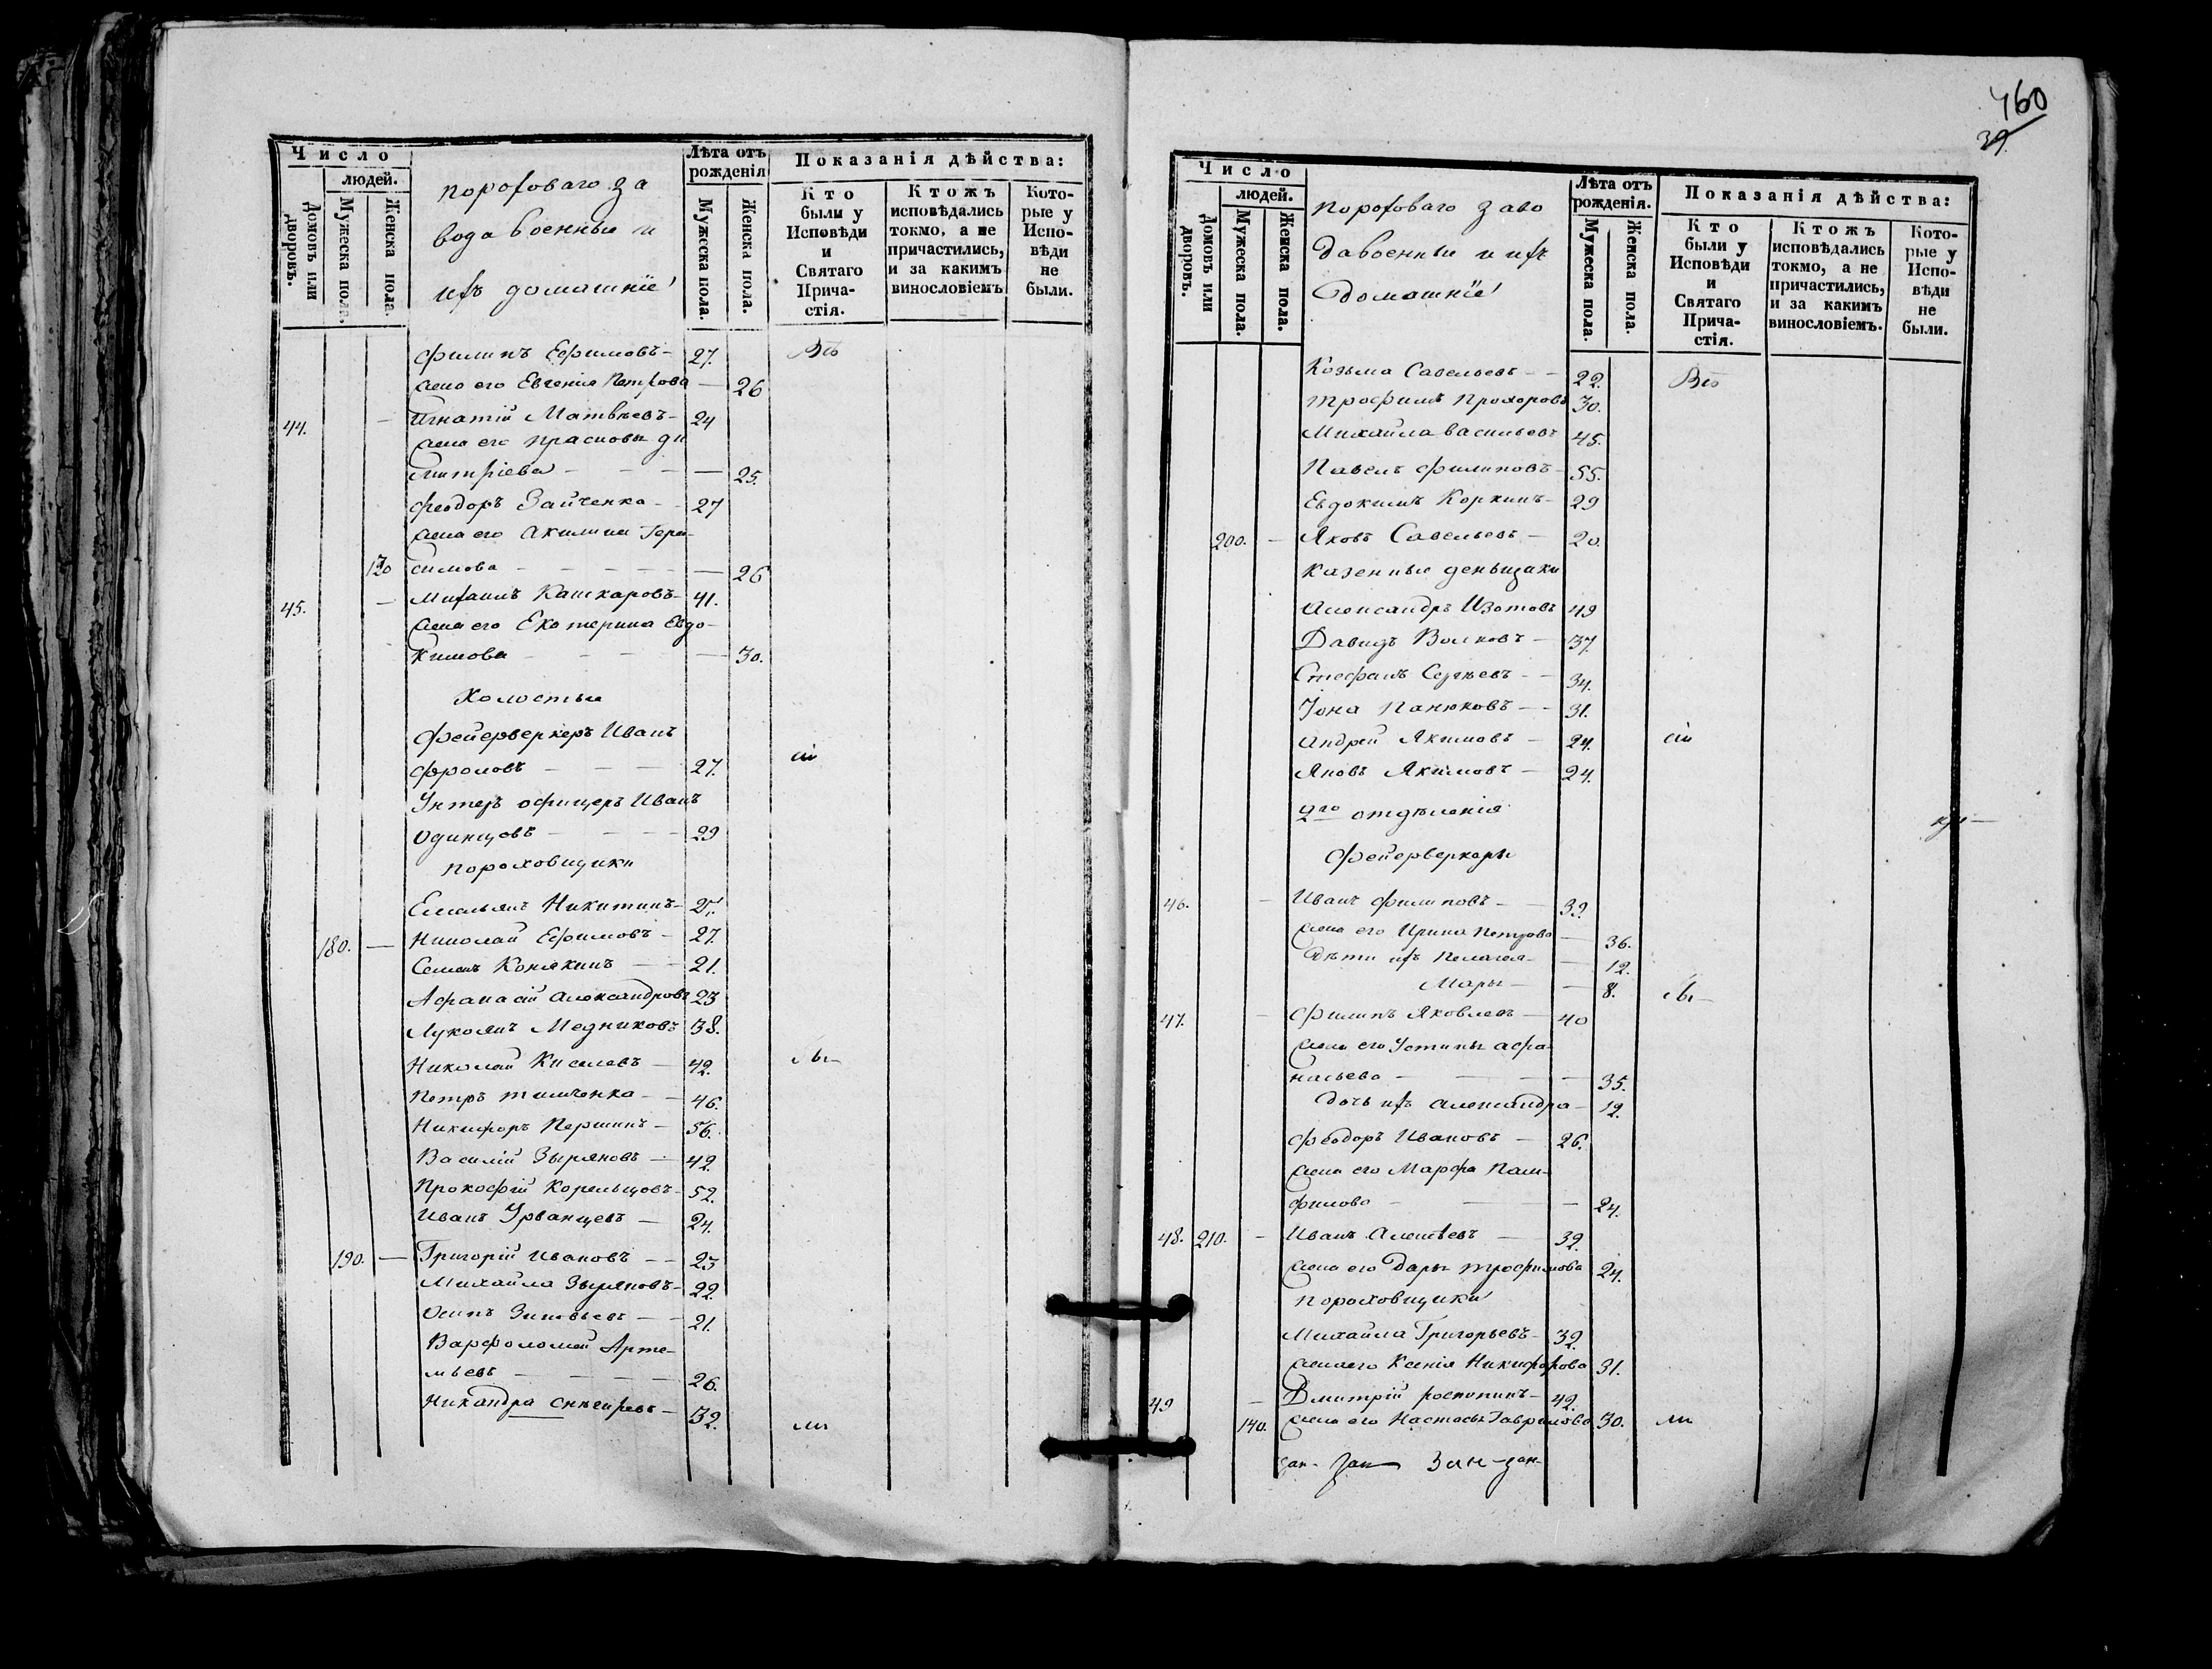 Число
людей.
Домовъ или дворовъ.
Мужеска пола.
Женска пола.
порохового за
вода военные и
ихъ домашніе
Лѣта отъ рожденія
Мужеска пола.
Женска пола.
Показанія дѣйства:
Кто были у Исповѣди и Святаго Прича-стія.
Ктожъ исповѣдались токмо, а не причастились, и за какимъ винословіемъ
Кото-рые у Испо-вѣди не были.
Филипъ Ефимовъ - 27. Вь
жена его Евгенія Петрова — 26
44. — Игнатій Матвѣевъ - 24
жена его Прасковья Ди
митріева — — 25.
Феодоръ Зайченко - 27
жена его Акилина Гера-
130 симова — — 26
45. — Михаилъ Кашкаровъ - 41.
жена его Екатерина Евдо-
кимова — — 30.
Холостые
Фейерверкеръ Иванъ
Фроловъ — 27. сіи
Унтеръ офицеръ Иванъ
Одинцовъ — 29
пороховщики
Емельянъ Никитинъ - 25.
180. — Николай Ефимовъ - 27.
Семенъ Конякинъ — 21.
Афанасій Александровъ 23
Лукьянъ Медниковъ 38.
Николай Киселевъ — 42.
Петръ Тимченко — 46.
Никифоръ Першинъ — 56.
Василій Зыряновъ — 42.
Прокофій Корельцовъ - 52.
Иванъ Урванцевъ — 24.
190. — Григорій Ивановъ — 23
Михайла Зыряновъ - 22.
Осипъ Зиновьевъ — 21.
Варфоломей Арте-
мьевъ — 26.
Никандра Снегиревъ — 32.
460
39.
Число
людей.
Домовъ или дворовъ.
Мужеска пола.
Женска пола.
порохового заво
да военные и ихъ
домашніе
Лѣта отъ рожденія.
Мужеска пола.
Женска пола.
Показанія дѣйства:
Кто были у Исповѣди и Святаго Прича-стія.
Ктожъ исповѣдались токмо, а не причастились, и за какимъ винословіемъ.
Кото-рые у Испо-вѣди не были.
Козьма Савельевъ — 22. Вь
Трофимъ Прохоровъ 30.
Михайла Васильевъ 45.
Павелъ Филиповъ - 55.
Евдокимъ Коркинъ - 29
200. — Яковъ Савельевъ — 20.
казенные деньщики
Александръ Изотовъ 49
Давидъ Волковъ — 37
Стефанъ Сергѣевъ — 34.
Іона Панюковъ — 31.
Андрей Якимовъ — 24. сіи
Яковъ Якимовъ — 24.
2го отдѣленія
Фейерверкеры
46. — Иванъ Филиповъ — 39.
жена его Ирина Петрова — 36.
Дѣти ихъ Пелагея — 12.
Марья — 8.
47. — Филипъ Яковлевъ — 40
жена его Устинья Афа-
насьева — 35.
Дочь ихъ Александра — 12.
Феодоръ Ивановъ — 26.
жена его Марфа Пам-
филова — 24.
48. 210. — Иванъ Алексѣевъ — 32.
жена его Дарья Трофимова 24.
пороховщики
Михайла Григорьевъ - 32.
жена его Ксенія Никифорова 31.
49 — Дмитрій Роспопинъ - 42.
140. жена его Настасья Гаврилова 30.